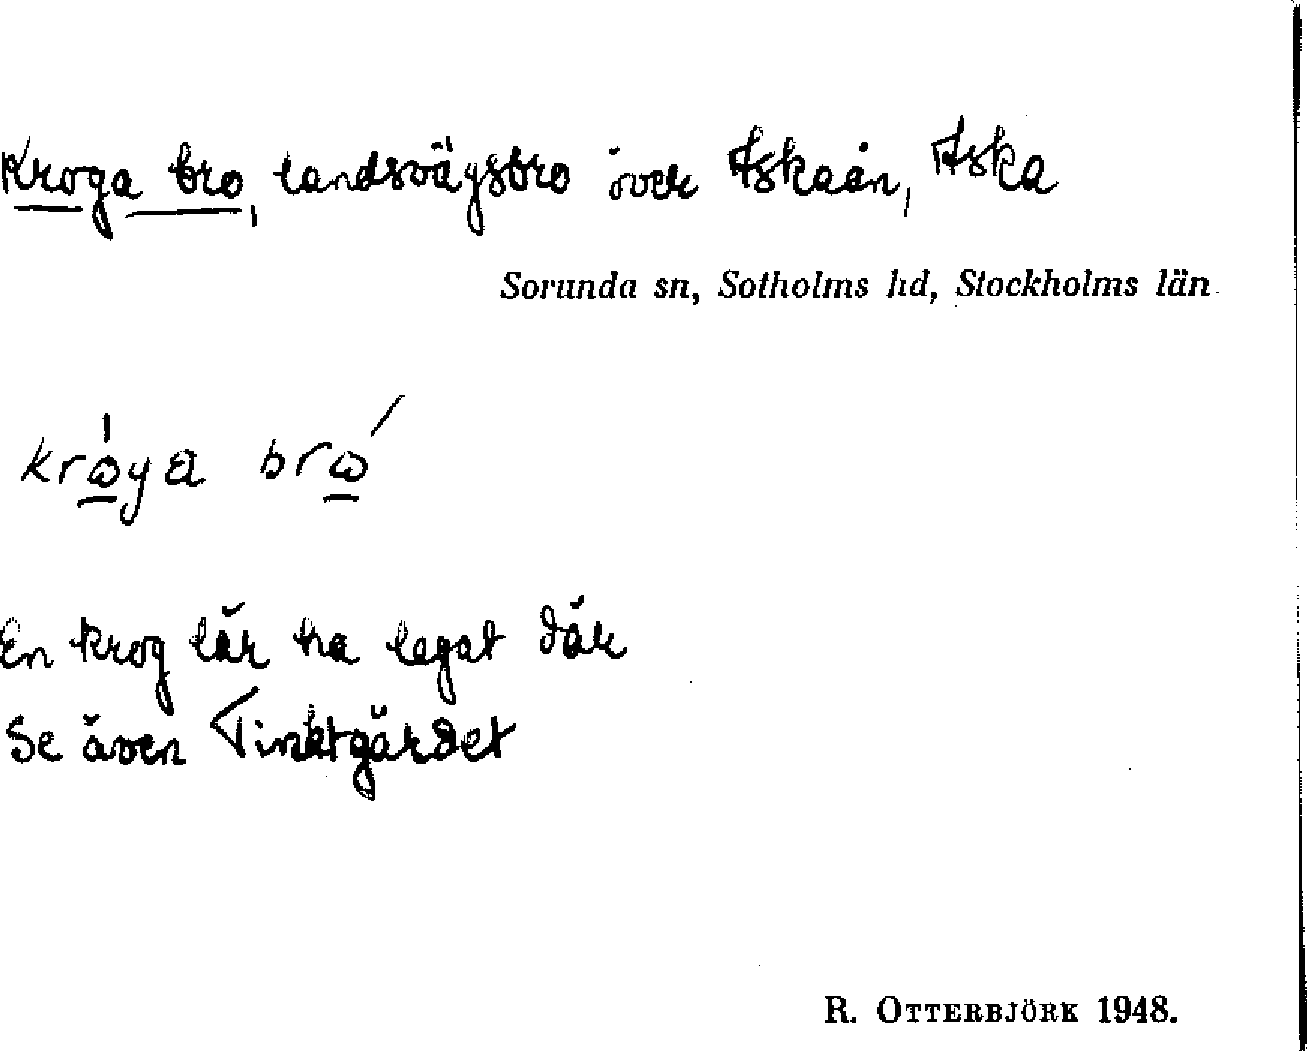 Kroga bro, landsvägsbro över Askaån, Aska
Sorunda sn, Sotholms hd, Stockholms län
En krog lär ha legat där
Se även Tinktgärdet
R. OTTERBJÖRK 1948.